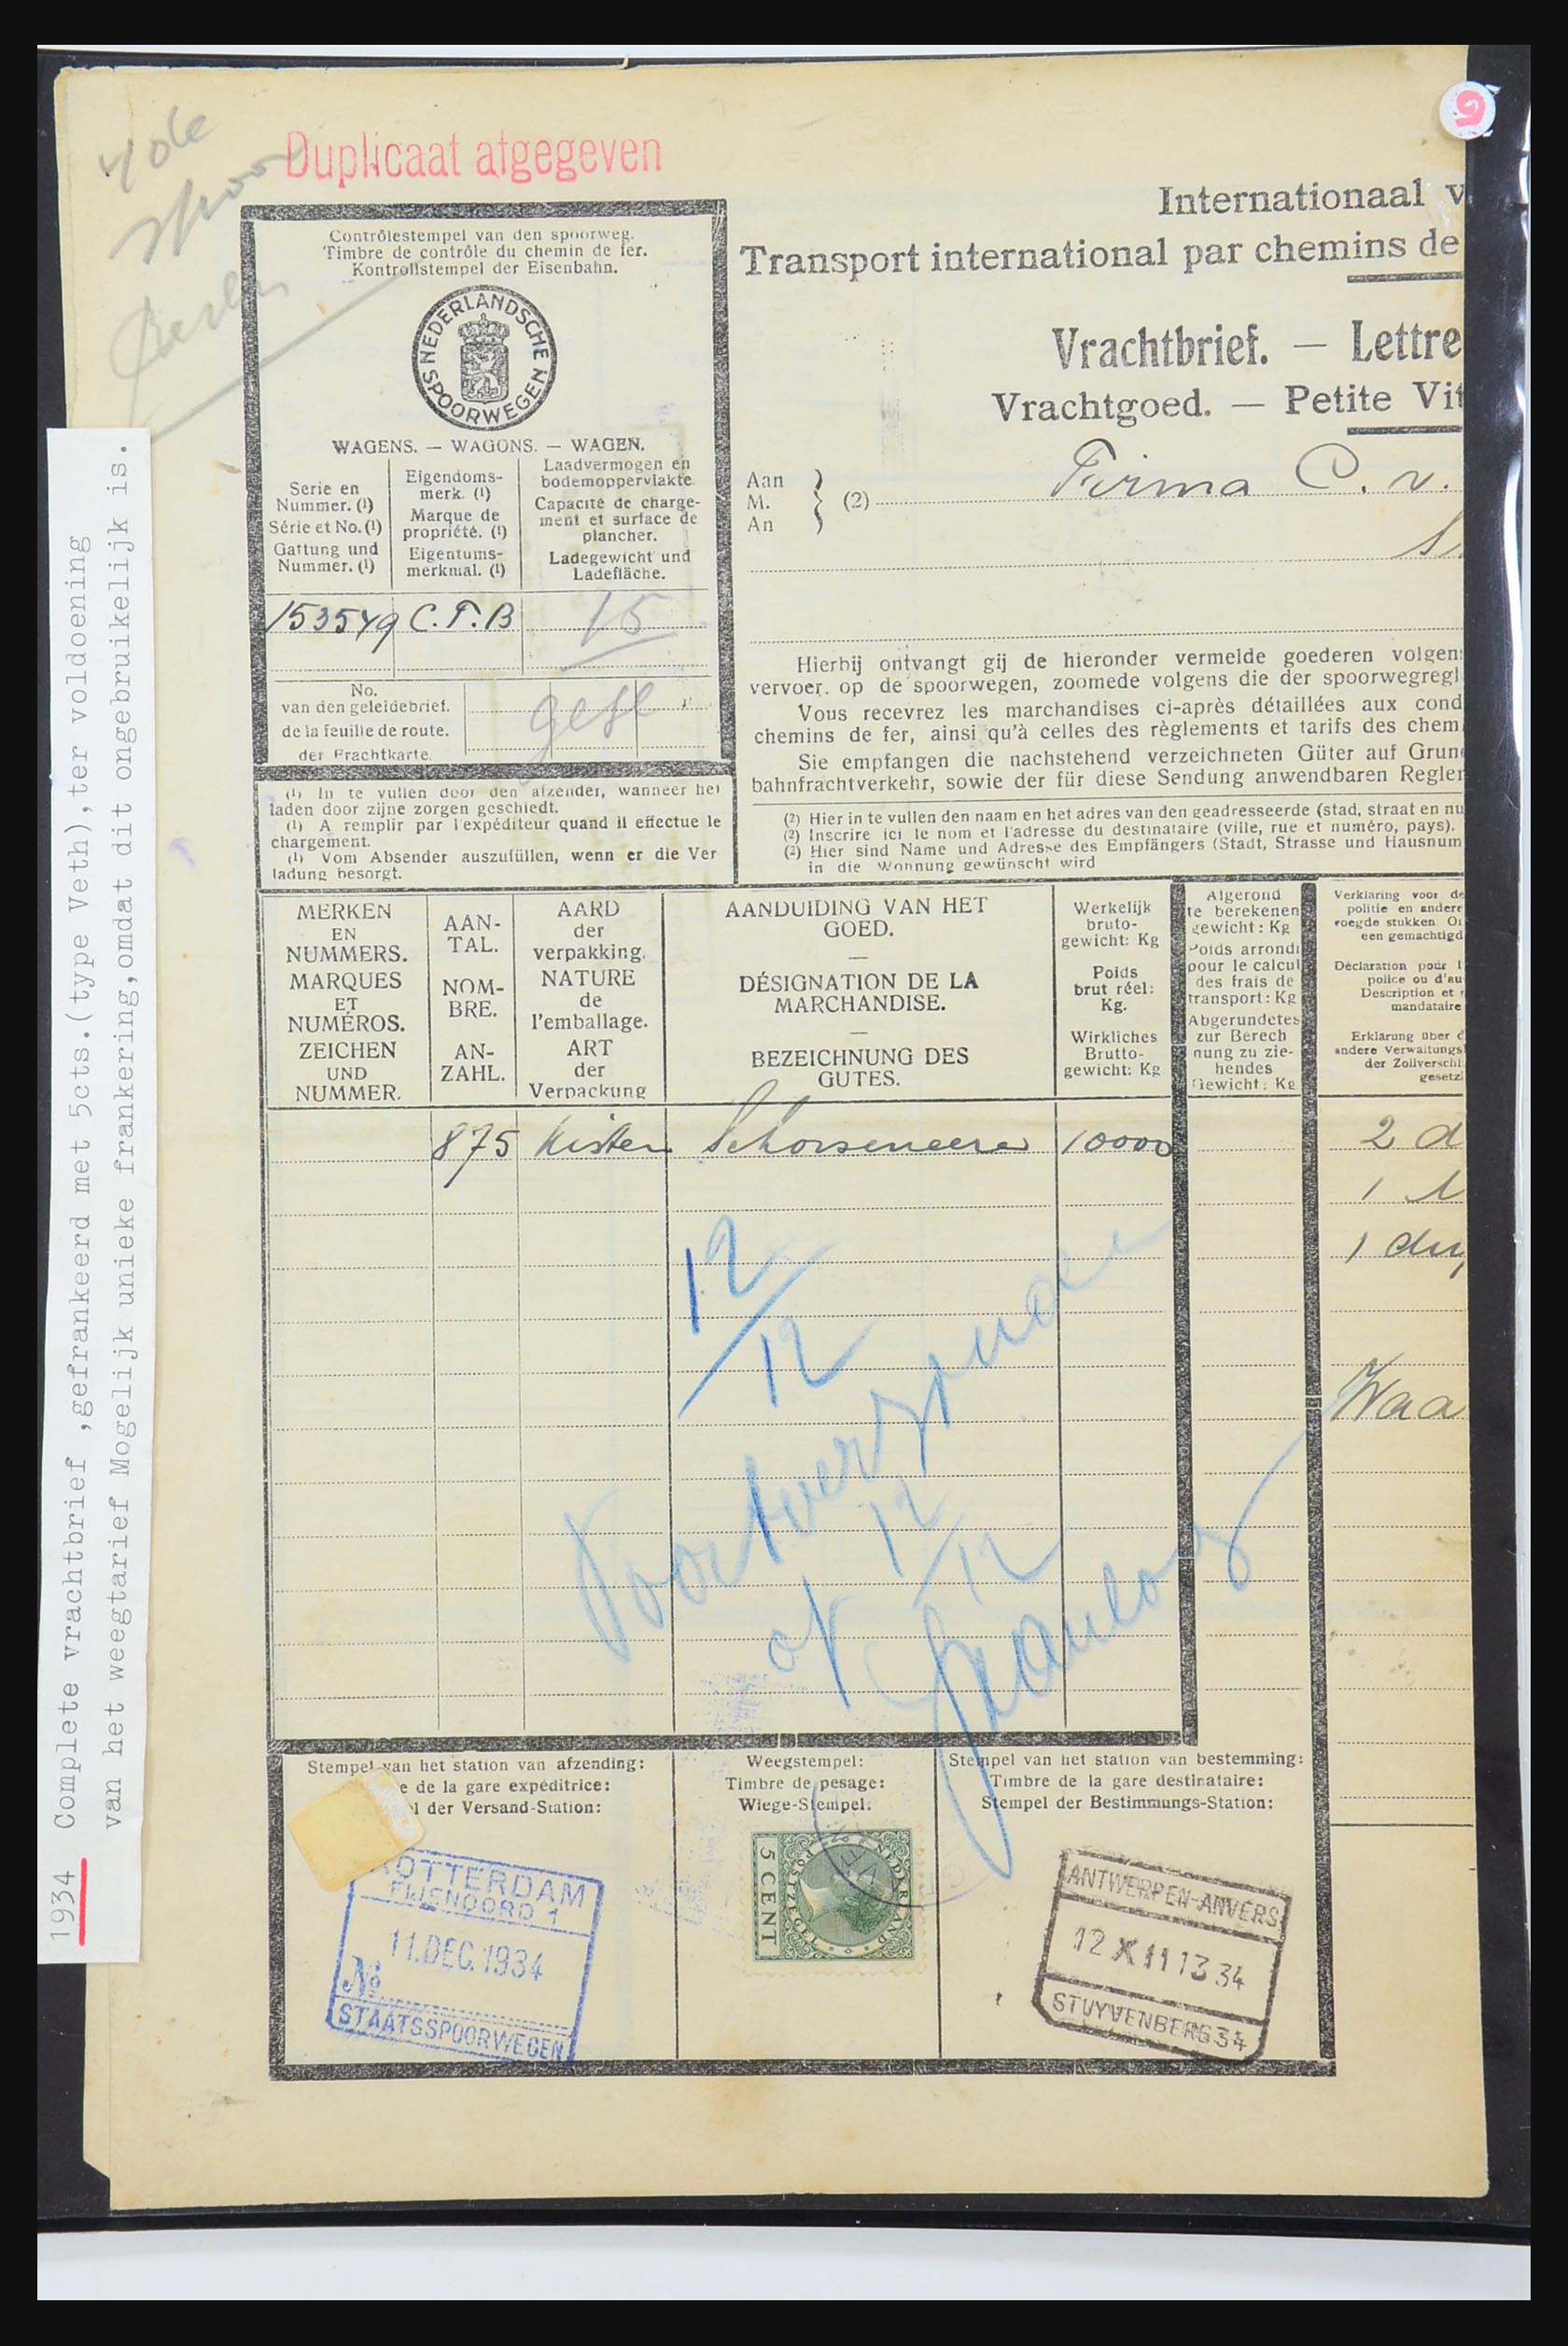 9
4de
Spoor
Duplicaat afgegeven
Internationaal v
Transport international par chemins de
Contrôlestempel van den spoorweg.
Timbre de contrôle du chemin de fer.
Kontrollstempel der Eisenbahn.
NEDERLANDSCHE SPOORWEGEN
Vrachtbrief. — Lettre
Vrachtgoed. — Petite Vit
WAGENS. — WAGONS. — WAGEN.
Serie en
Nummer. (1)
Série et No. (1)
Gattung und
Nummer. (1)
Eigendoms-
merk. (1)
Marque de
propriété. (1)
Eigentums-
merkmal. (1)
Laadvermogen en
bodemoppervlakte
Capacité de charge-
ment et surface de
plancher.
Ladegewicht und
Ladefläche.
153549 C.F.B 15
No.
van den geleidebrief.
de la feuille de route.
der Frachtkarte.
Aan
M.
An
(2) Firma C. v.
Hierbij ontvangt gij de hieronder vermelde goederen volgens
vervoer op de spoorwegen, zoomede volgens die der spoorwegregl
Vous recevrez les marchandises ci-après détaillées aux cond
chemins de fer, ainsi qu'à celles des règlements et tarifs des chem
Sie empfangen die nachstehend verzeichneten Güter auf Grun
bahnfrachtverkehr, sowie der für diese Sendung anwendbaren Regler
(1) In te vullen door den afzender, wanneer het
laden door zijne zorgen geschiedt.
(1) A remplir par l'expéditeur quand il effectue le
chargement.
(1) Vom Absender auszufüllen, wenn er die Ver
ladung besorgt.
(2) Hier in te vullen den naam en het adres van den geadresseerde (stad, straat en nu
(2) Inscrire ici le nom et l'adresse du destinataire (ville, rue et numéro, pays).
(2) Hier sind Name und Adresse des Empfängers (Stadt, Strasse und Hausnum
in die Wohnung gewünscht wird
MERKEN
EN
NUMMERS.
MARQUES
ET
NUMÉROS.
ZEICHEN
UND
NUMMER.
AAN-
TAL.
NOM-
BRE.
AN-
ZAHL.
AARD
der
verpakking.
NATURE
de
l'emballage.
ART
der
Verpackung
AANDUIDING VAN HET
GOED.
—
DÉSIGNATION DE LA
MARCHANDISE.
—
BEZEICHNUNG DES
GUTES.
Werkelijk
bruto-
gewicht: Kg
Poids
brut réel:
Kg.
Wirkliches
Brutto-
gewicht: Kg
Afgerond
te berekenen
gewicht: Kg
Poids arrondi
pour le calcul
des frais de
transport: Kg
Abgerundetes
zur Berech
nung zu zie-
hendes
Gewicht: Kg
Verklaring voor de
politie en andere
voegde stukken. Of
een gemachtigd
Déclaration pour l
police ou d'au
Description et
mandataire
Erklärung über d
andere Verwaltungs
der Zollverschl
gesetz
875 Kisten Schorseneeren 10000
2 d
1
1 dup
Waa
12/12
12/12
Stempel van het station van afzending:
e de la gare expéditrice:
l der Versand-Station:
Weegstempel:
Timbre de pesage:
Wiege-Stempel.
Stempel van het station van bestemming:
Timbre de la gare destinataire:
Stempel der Bestimmungs-Station:
ROTTERDAM
FIJENOORD 1
11.DEC.1934
No
STAATSSPOORWEGEN
NEDERLAND
POSTZEGEL
5 CENT
ANTWERPEN-ANVERS
12 X 11 13 34
STUYVENBERG 34
1934 Complete vrachtbrief ,gefrankeerd met 5cts.(type Veth),ter voldoening
van het weegtarief Mogelijk unieke frankering,omdat dit ongebruikelijk is.